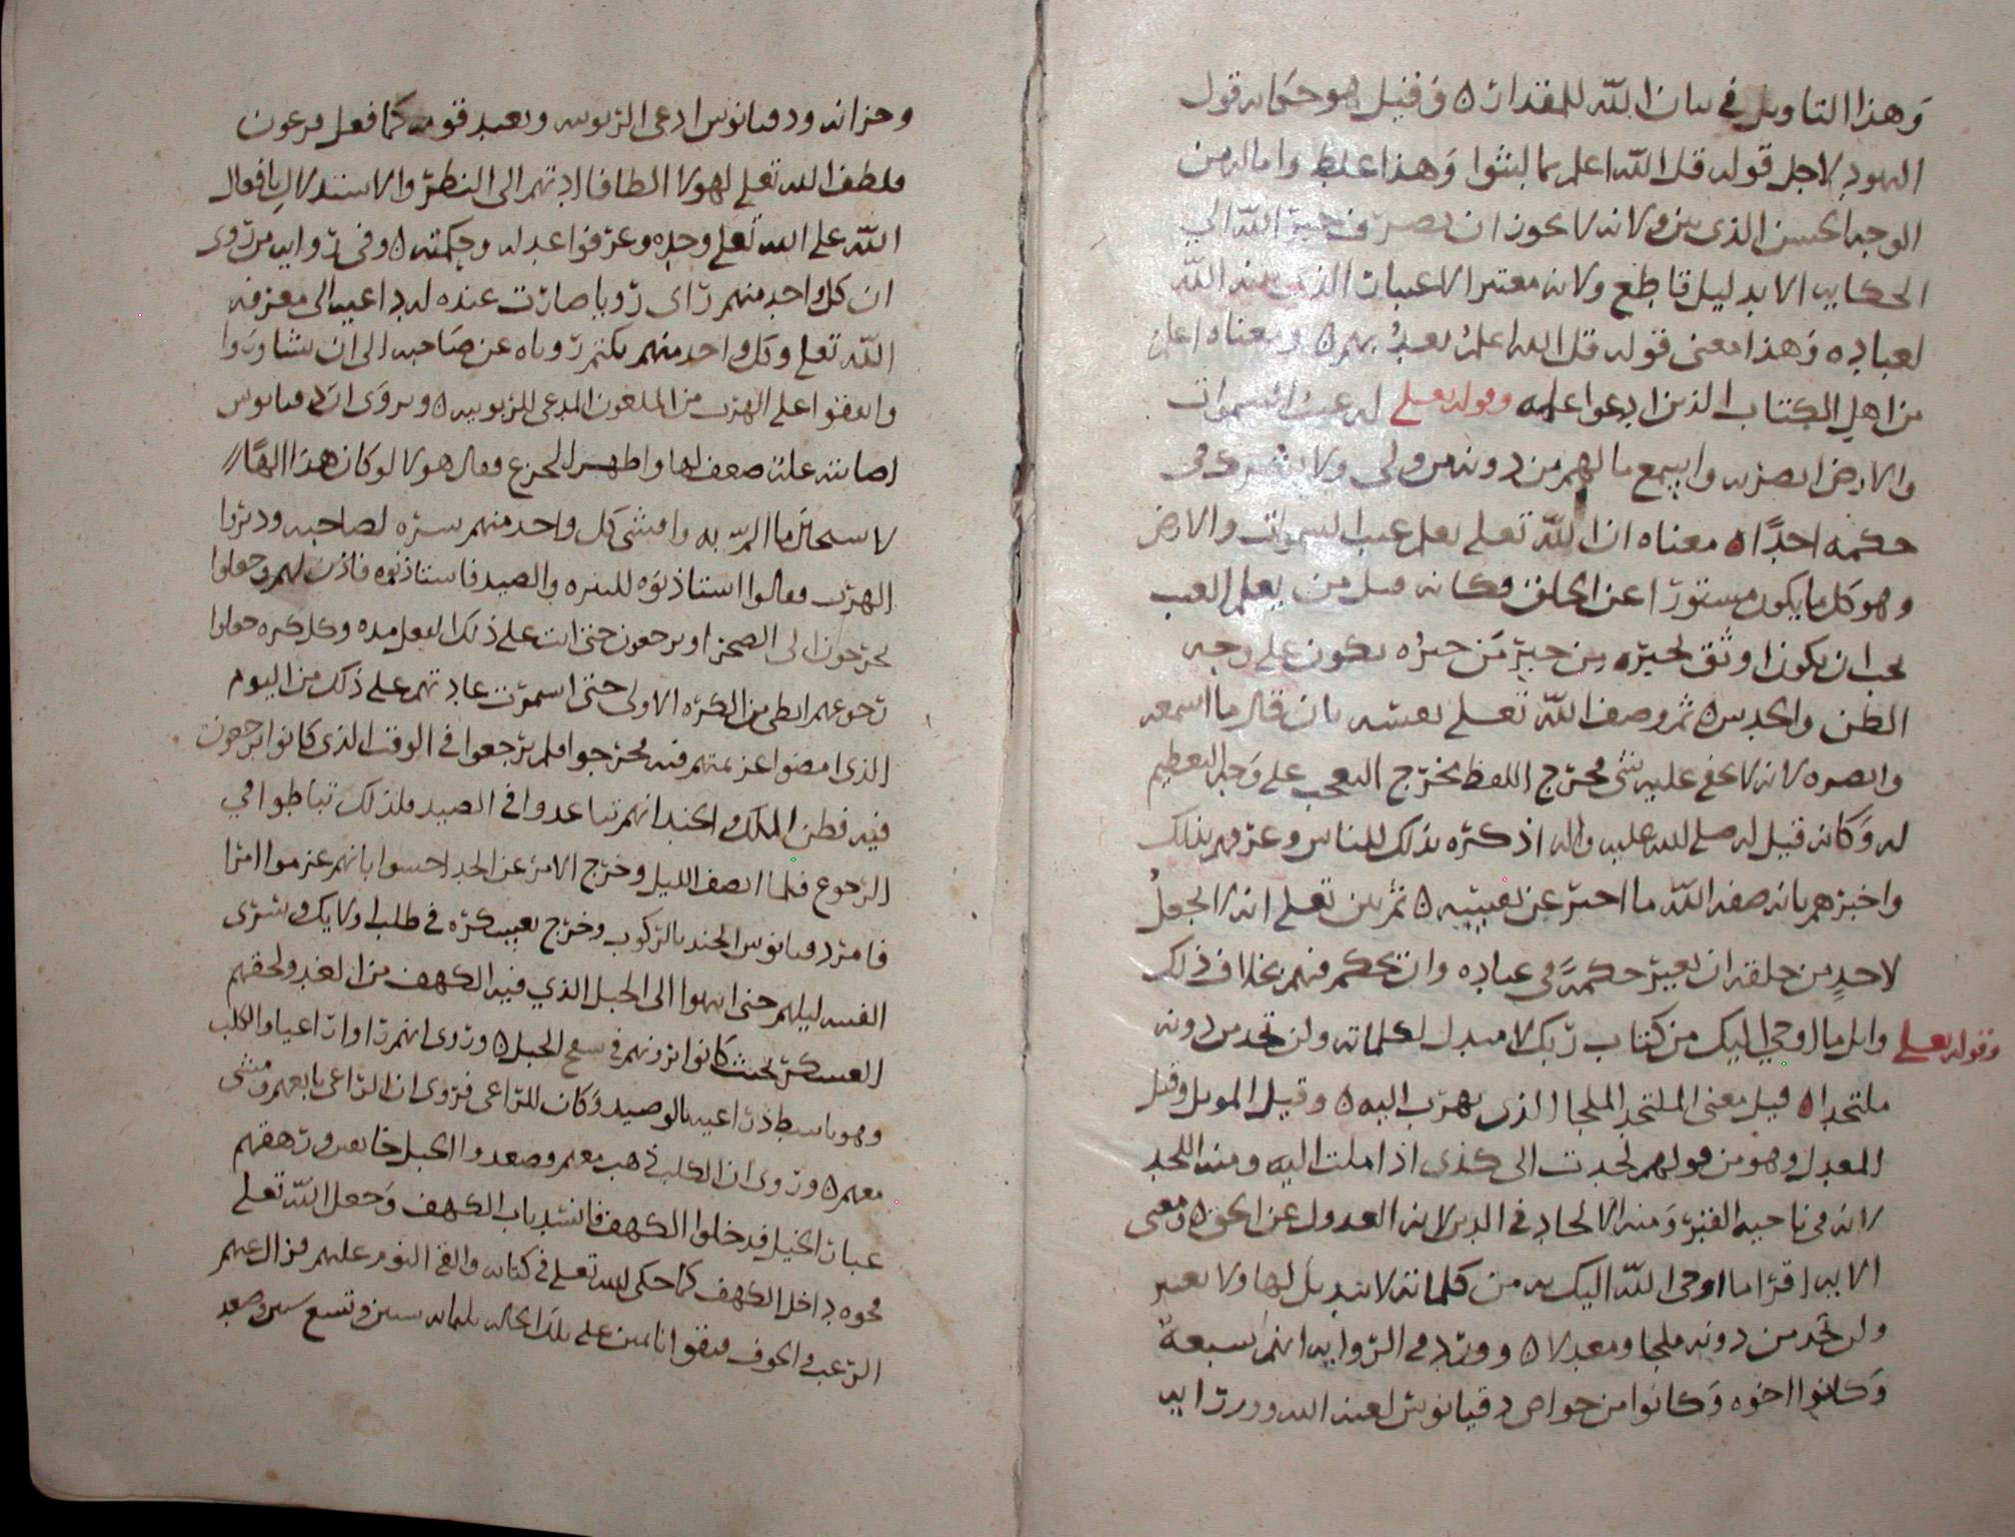 وهذا التاويل في بيان الله للمقدار ه وقيل هو حكايه قول
اليهود لاجل قوله قل الله اعلم بما لبثوا وهذا غلط واماله من
الوجه الحسن الذي بين ولانه لا يجوز ان يصرف خبر الله الي
الحكايه الا بدليل قاطع ولانه معتبر الاعتبار الذي بينه الله
لعباده وهذا معنى قوله قل الله اعلم بعدتهم ه ومعناه اعلم
من اهل الكتاب الذين ادعوا علمه وقوله تعلى له غيب السموات
والارض ابصر به واسمع ما لهم من دونه من ولي ولا يشرك في
حكمه احدًا ه معناه ان الله تعلى يعلم غيب السموات والارض
وهو كل ما يكون مستورًا عن الخلق فكانه قيل من يعلم الغيب
يجب ان يكون اوثق لخبره من خبر من خبره يكون على وجه
الظن والحدس ه ثم وصف الله تعلى نفسه بان قال ما اسمعه
وابصره لانه لا يخفى عليه شي مخرج اللفظ مخرج التعجب على وجه التعظيم
له وكانه قيل له صلى الله عليه واله اذكره بذلك للناس وعرفهم بذلك
واخبرهم بانه صفه الله ما اخبر عن نفسه ه ثم بين تعلى انه لا يجعل
لاحدٍ من خلقه ان يغير حكمه في عباده وان يحكم فيهم بخلاف ذلك
وقوله تعلى واتل ما اوحي اليك من كتاب ربك لا مبدل لكلماته ولن تجد من دونه
ملتحدا ه قيل معنى الملتحد الملجا الذي يهرب اليه ه وقيل الموئل وقيل
المعدل وهو من قولهم لحدت الى كذى اذا ملت اليه ومنه اللحد
لانه في ناحيه القبر ومنه الالحاد في الدين لانه العدول عن الحق ه ومعنى
الايه اقرا ما اوحى الله اليك به من كلماته لا تبديل لها ولا تغيير
ولن تجد من دونه ملجا ومعدلا ه وورد في الروايه انهم سبعة
وكانوا اخوه وكانوا من خواص دقيانوس لعنه الله ووزرايه
وخزانه ودقيانوس ادعى الربوبيه وتعبد قومه كما فعل فرعون
فلطف الله تعلى لهولا الطافا ادتهم الى النظر والاستدلال بافعال
الله على الله تعلى وحده وعرفوا عدله وحكمته ه وفي روايه من روى
ان كل واحد منهم راى رويا صارت عنده له داعيه الى معرفه
الله تعلى وكل واحد منهم يكتم روياه عن صاحبه الى ان تشاوروا
واتفقوا على الهرب من الملعون المدعي للربوبيه ه ويروى ان دقيانوس
اصابته علة ضعف لها واظهر الجزع فقال هولا لو كان هذا الهًا
لا ستحال ما الم به وافشى كل واحد منهم سره لصاحبه ودبروا
الهرب فقالوا استاذنوه للنزه والصيد فاستاذنوه فاذن لهم وجعلوا
يخرجون الى الصحرا ويرجعون حتى اتت على ذلك الفعل مده وكل كره جعلوا
رجوعهم ابطى من الكره الاولى حتى استمرت عادتهم على ذلك من اليوم
الذي امضوا عزيمتهم فيه فخرجوا فلم يرجعوا في الوقت الذي كانوا يرجعون
فيه فظن الملك والجند انهم تباعدوا في الصيد فلذلك تباطوا في
الرجوع فلما انصف الليل وخرج الامر عن الحد احسوا بانهم عزموا امرا
فامر دقيانوس الجند بالركوب وخرج بعسكره في طلبهم ولا يك وشرى
الفتيه ليلهم حتى انتهوا الى الجبل الذي فيه الكهف من الغد ولحقهم
العسكر بحيث كانوا يرونهم في سفح الجبل ه وروى انهم راوا راعيا والكلب
وهو باسط ذراعيه بالوصيد وكان للراعي فروى ان الراعي تابعهم ومشى
معهم ه وروى ان الكلب ذهب معهم وصعدوا الجبل خايفين ورهقهم
غبار الخيل فدخلوا الكهف فانسد باب الكهف وجعل الله تعلى
فجوه داخل الكهف كما حكى الله تعلى في كتابه والقى النوم عليهم فزال عنهم
الرعب والخوف فبقوا نايمين على تلك الحاله ثلثمايه سنين وتسع سنين وبعد